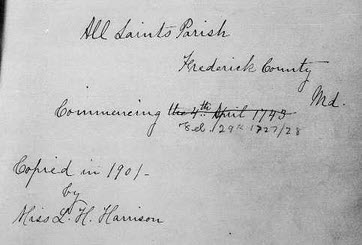 All Saints Parish
Frederick County
Md.
Commencing the 4th April 1743
Feb. 29th 1727/28
Copied in 1901-
by
Miss L. H. Harrison